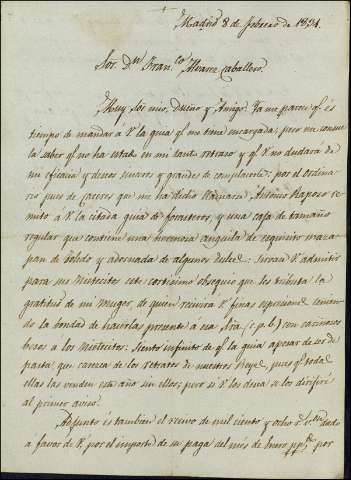 Madrid 8 de Febrero de 1831.
Sor. Dn. Fran.co Alvarez Caballero.
Muy Sor. mio, Dueño y Amigo. Ya me parece q.e es
tiempo de mandar a V. la guia q.e me tiene encargada; pero me consue
la saber q.e no ha estado en mi tanto retraso y q.e V. no dudará de
mi eficacia y deseo sinceros y grandes de complacerle: por el ordina
rio pues de Caceres que me ha dicho llamarse Antonio Raposo re
mito a V. la citada guia de forasteros, y una caja de tamaño
regular que contiene una hermosa anguila de esquisito maza
pan de Toledo y adornada de algunos dulces: sirvase V. admitir
para sus Nietecitos este cortisimo obsequio que les tributa la
gratitud de mi muger, de quien recivirá V. finas espresiones tenien
do la bondad de hacerlas presente a esa Sra. (c. p. b.) con cariñosos
besos a los Nietecitos: siento infinito q.e la guia apesar de ser de
pasta, que carezca de los retratos de nuestros Reyes, pues q.e todas
ellas las venden este año sin ellos; pero si V. los desea se los dirijiré
al primer aviso.
Adjunto és tambien el recivo de mil ciento y ocho r.s dado
a favor de V. por el importe de su paga del més de Enero pp.do por